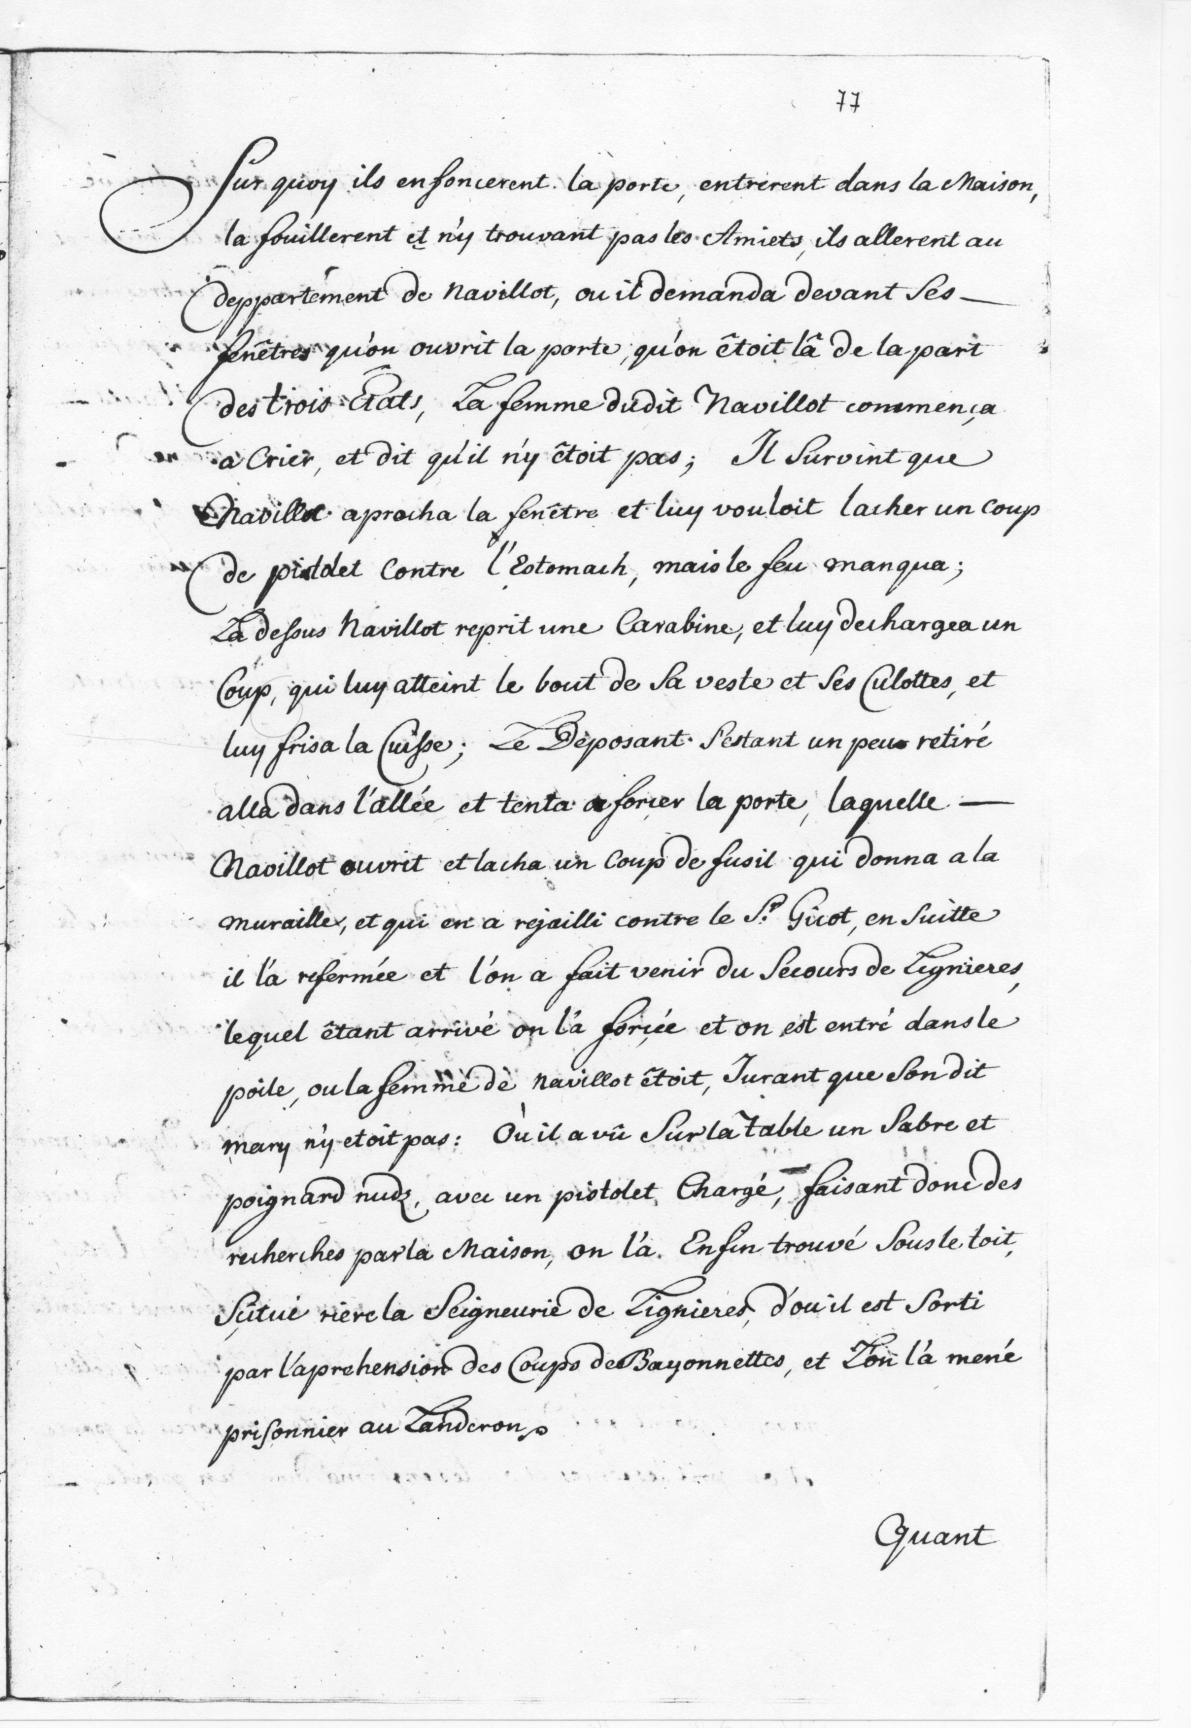 77
Sur quoy ils enfoncerent la porte, entrerent dans la Maison,
la fouillerent et n'y trouvant pas les Amiets, ils allerent au
deppartement de Navillot, ou il demanda devant ses
fenêtres qu'on ouvrit la porte, qu'on êtoit lâ de la part
des trois Êtats, La femme dudit Navillot commença
a Crier, et dit qu'il n'y êtoit pas; Il survint que
Navillot aprocha la fenêtre et luy vouloit lacher un coup
de pistolet contre l'Estomach, mais le feu manqua;
La dessus Navillot reprit une Carabine, et luy dechargea un
Coup, qui luy atteint le bout de sa veste et ses Culottes, et
luy frisa la Cuisse; Le Deposant s'estant un peu retiré
alla dans l'allée et tenta a forcer la porte, laquelle
Navillot ouvrit et lacha un Coup de fusil qui donna a la
muraille, et qui en a rejailli contre le Sr. Gicot, en suitte
il l'a refermée et l'on a fait venir du secours de Lignieres,
lequel êtant arrivé on l'a forçée et on est entré dans le
poile, ou la femme de Navillot êtoit, Jurant que son dit
mary n'y etoit pas: Ou il a vû sur la Table un Sabre et
poignard nudz, avec un pistolet Chargé, faisant donc des
recherches par la Maison, on l'a Enfin trouvé sous le toit,
Scitué riere la Seigneurie de Lignieres, d'ou il est sorti
par l'aprehension des Coups de Bayonnettes, et L'on l'a mené
prisonnier au Landeron.
Quant